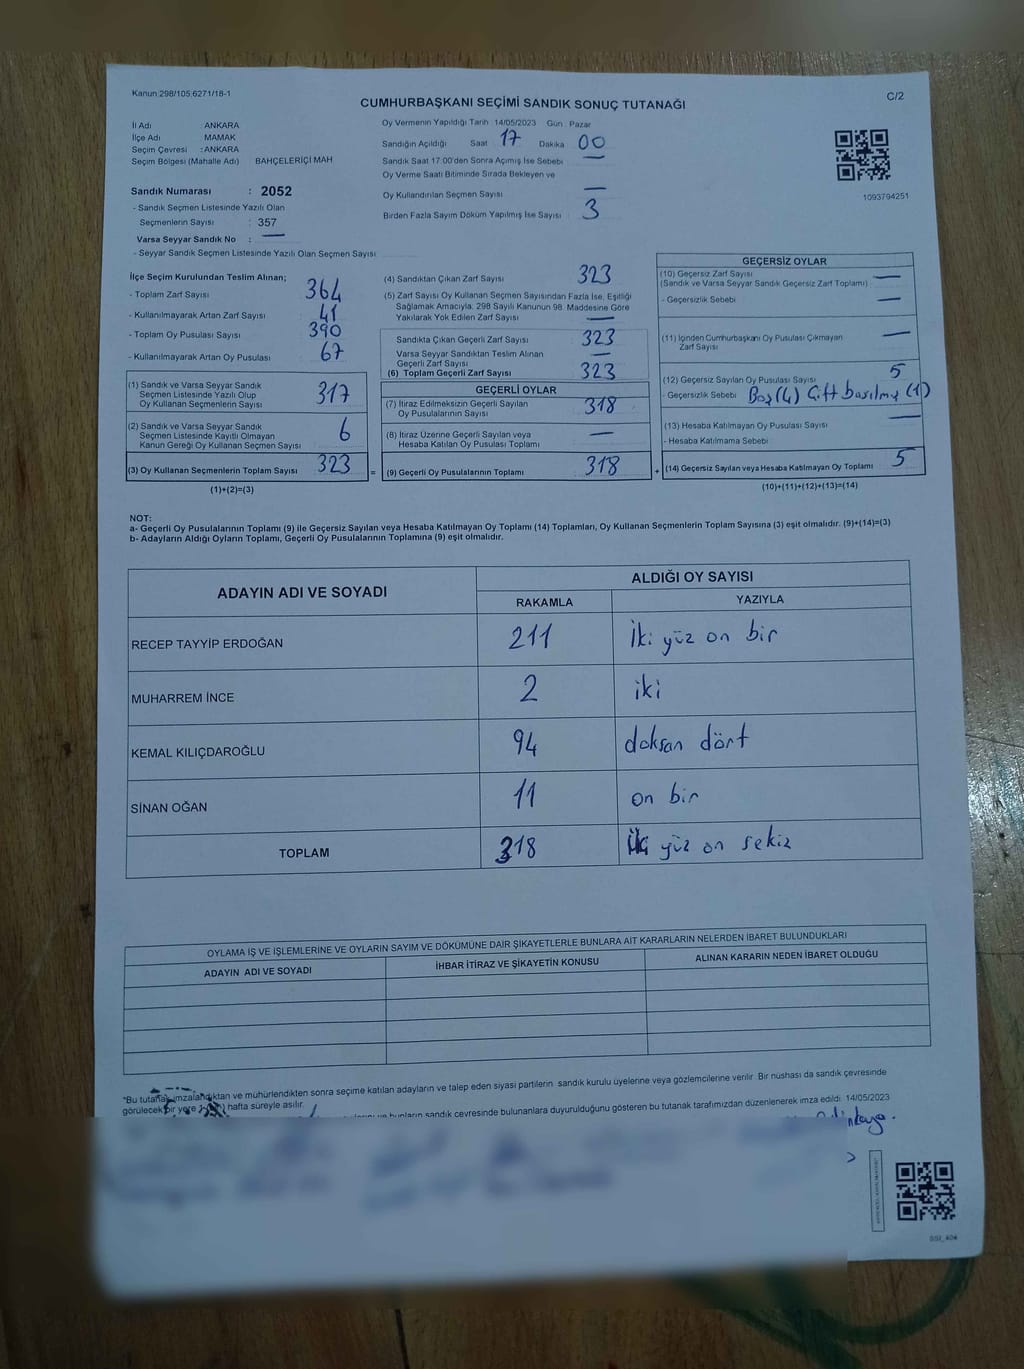 Kanun:298/105,6271/18-1
C/2
CUMHURBAŞKANI SEÇİMİ SANDIK SONUÇ TUTANAĞI
İl Adı : ANKARA
İlçe Adı : MAMAK
Seçim Çevresi : ANKARA
Seçim Bölgesi (Mahalle Adı) BAHÇELERİÇİ MAH
Sandık Numarası : 2052
- Sandık Seçmen Listesinde Yazılı Olan
Seçmenlerin Sayısı : 357
Varsa Seyyar Sandık No : —
- Seyyar Sandık Seçmen Listesinde Yazılı Olan Seçmen Sayısı
Oy Vermenin Yapıldığı Tarih 14/05/2023 Gün: Pazar
Sandığın Açıldığı Saat 17 Dakika 00
Sandık Saat 17:00'den Sonra Açımış İse Sebebi —
Oy Verme Saati Bitiminde Sırada Bekleyen ve
Oy Kullandırılan Seçmen Sayısı —
Birden Fazla Sayım Döküm Yapılmış İse Sayısı 3
1093794251
İlçe Seçim Kurulundan Teslim Alınan;
- Toplam Zarf Sayısı 364
- Kullanılmayarak Artan Zarf Sayısı 41
- Toplam Oy Pusulası Sayısı 390
- Kullanılmayarak Artan Oy Pusulası 67
(1) Sandık ve Varsa Seyyar Sandık
Seçmen Listesinde Yazılı Olup
Oy Kullanan Seçmenlerin Sayısı 317
(2) Sandık ve Varsa Seyyar Sandık
Seçmen Listesinde Kayıtlı Olmayan
Kanun Gereği Oy Kullanan Seçmen Sayısı 6
(3) Oy Kullanan Seçmenlerin Toplam Sayısı 323 =
(1)+(2)=(3)
(4) Sandıktan Çıkan Zarf Sayısı 323
(5) Zarf Sayısı Oy Kullanan Seçmen Sayısından Fazla İse, Eşitliği
Sağlamak Amacıyla; 298 Sayılı Kanunun 98. Maddesine Göre
Yakılarak Yok Edilen Zarf Sayısı —
Sandıkta Çıkan Geçerli Zarf Sayısı 323
Varsa Seyyar Sandıktan Teslim Alınan
Geçerli Zarf Sayısı —
(6) Toplam Geçerli Zarf Sayısı 323
GEÇERLİ OYLAR
(7) İtiraz Edilmeksizin Geçerli Sayılan
Oy Pusulalarının Sayısı 318
(8) İtiraz Üzerine Geçerli Sayılan veya
Hesaba Katılan Oy Pusulası Toplamı —
(9) Geçerli Oy Pusulalarının Toplamı 318 +
GEÇERSİZ OYLAR
(10) Geçersiz Zarf Sayısı —
(Sandık ve Varsa Seyyar Sandık Geçersiz Zarf Toplamı)
- Geçersizlik Sebebi —
(11) İçinden Cumhurbaşkanı Oy Pusulası Çıkmayan —
Zarf Sayısı
(12) Geçersiz Sayılan Oy Pusulası Sayısı 5
- Geçersizlik Sebebi Boş (4) Çift basılmış (1)
(13) Hesaba Katılmayan Oy Pusulası Sayısı —
- Hesaba Katılmama Sebebi
(14) Geçersiz Sayılan veya Hesaba Katılmayan Oy Toplamı 5
(10)+(11)+(12)+(13)=(14)
NOT:
a- Geçerli Oy Pusulalarının Toplamı (9) ile Geçersiz Sayılan veya Hesaba Katılmayan Oy Toplamı (14) Toplamları, Oy Kullanan Seçmenlerin Toplam Sayısına (3) eşit olmalıdır. (9)+(14)=(3)
b- Adayların Aldığı Oyların Toplamı, Geçerli Oy Pusulalarının Toplamına (9) eşit olmalıdır.
ADAYIN ADI VE SOYADI ALDIĞI OY SAYISI
RAKAMLA YAZIYLA
RECEP TAYYİP ERDOĞAN 211 iki yüz on bir
MUHARREM İNCE 2 iki
KEMAL KILIÇDAROĞLU 94 doksan dört
SİNAN OĞAN 11 on bir
TOPLAM 318 yüz on sekiz
OYLAMA İŞ VE İŞLEMLERİNE VE OYLARIN SAYIM VE DÖKÜMÜNE DAİR ŞİKAYETLERLE BUNLARA AİT KARARLARIN NELERDEN İBARET BULUNDUKLARI
ADAYIN ADI VE SOYADI İHBAR İTİRAZ VE ŞİKAYETİN KONUSU ALINAN KARARIN NEDEN İBARET OLDUĞU
"Bu tutanak imzalandıktan ve mühürlendikten sonra seçime katılan adayların ve talep eden siyasi partilerin sandık kurulu üyelerine veya gözlemcilerine verilir. Bir nüshası da sandık çevresinde
görülecek bir yere hafta süreyle asılır.
bunların sandık çevresinde bulunanlara duyurulduğunu gösteren bu tutanak tarafımızdan düzenlenerek imza edildi. 14/05/2023